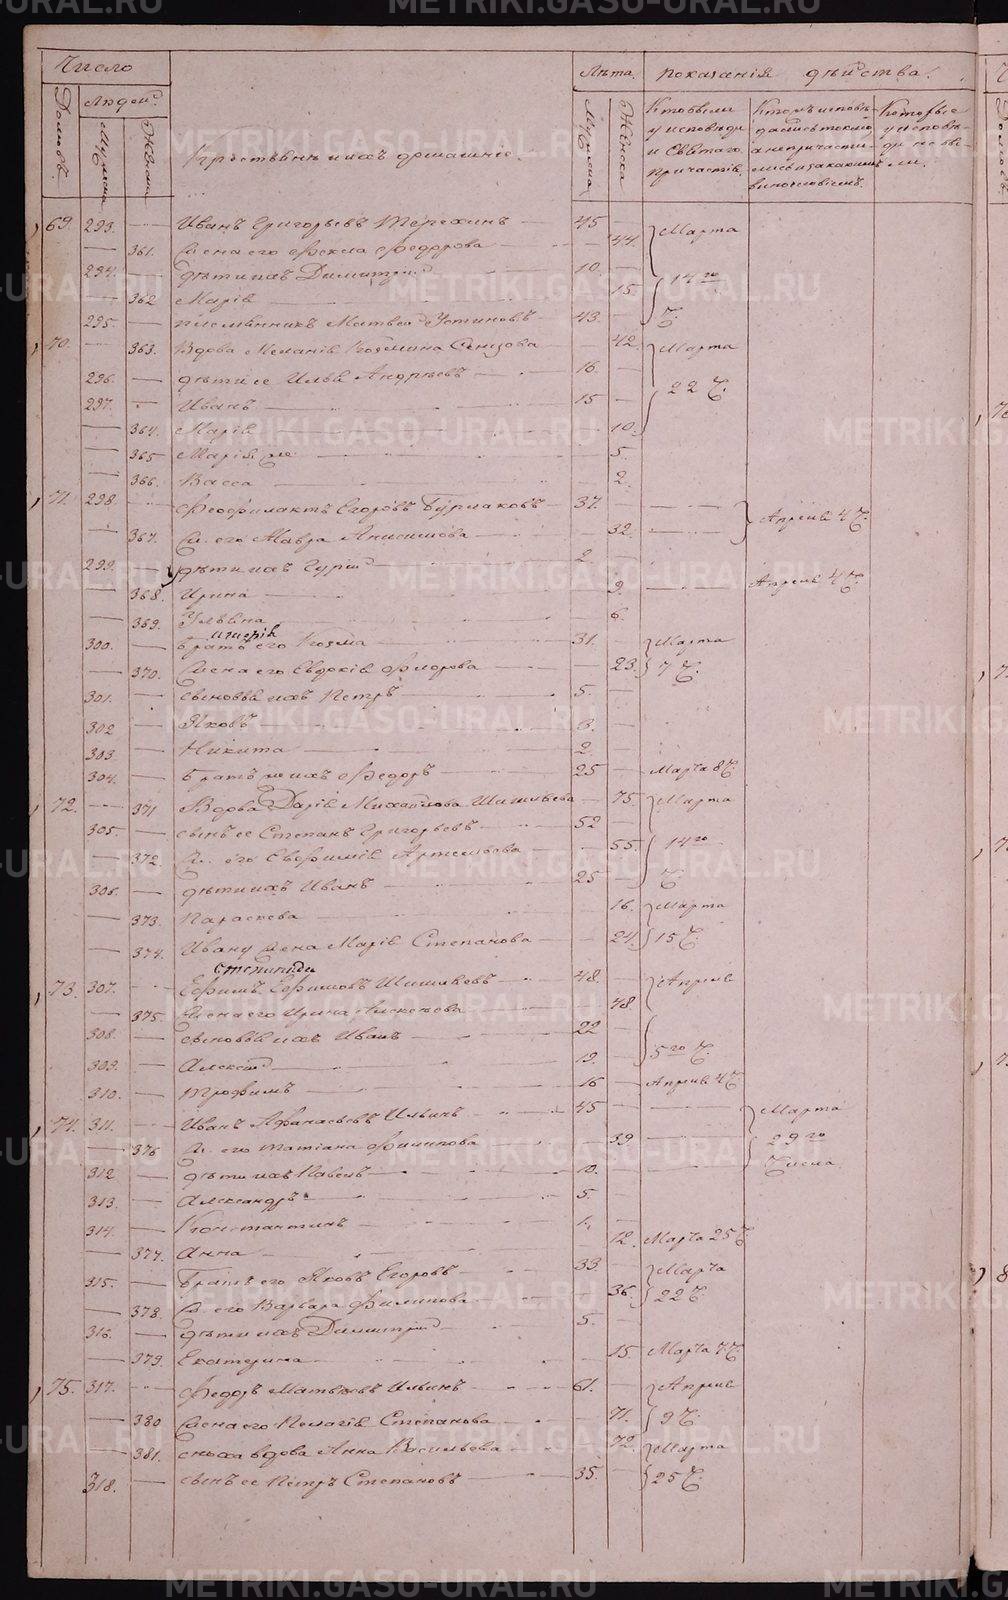 Число
Лѣта.
показанія дѣйства.
Людей.
Домовъ.
Мужска
Женска
Крестьянѣ и ихъ домашніе
Мужска
Женска
Кто были у исповѣди и Святаго причастія.
69. 293. Иванъ Григорьевъ Терехинъ 45 Марта
361. Жена его Фекла Федорова 44.
294. дѣти ихъ Димитрій 10. 14го
362 Марія 15
295. племянникъ Матвей Устиновъ 43. Ч.
70. 363. Вдова Меланія Козмина 42. Марта
296. дѣти ее Илья Андреевъ 16. 22 Ч.
297. Иванъ 15
364. Марія 10.
365 Марія же 5.
366. Васса 2.
71. 298. Феофилактъ Егоровъ Бурмаковъ 37. Апреля 4 Ч.
367. Ж. его Мавра Анисимова 32.
299. дѣти ихъ Гурій 2.
368. Ирина 9. Апреля 4 Ч.
369. Ульяна 6.
300. братъ его Козма 31. Марта
370. Жена его Евдокія Фиорова 23. 7 Ч.
301. сыновья ихъ Петръ 5.
302 Яковъ 3.
303. Никита 2.
304. Братъ же ихъ Федоръ 25 Марта 8 Ч.
72. 371 Вдова Дарія Михайлова Шишкѣева 75. Марта
305. сынъ ее Степанъ Григорьевъ 52
372. Ж. его Евфимія Артемьева 55. 14го
306. дѣти ихъ Иванъ 25 Ч.
373. Параскева 16. Марта
374. Ивану жена Марія Степанова 24. 15 Ч.
73. 307. Ефимъ Ефимовъ Шишкѣевъ 48. Апреля
375. Жена его Ирина Алексѣева 48.
308. сыновья ихъ Иванъ 22
309. Алексѣй 19. 5го Ч.
310. Трофимъ 16 Апреля 4 Ч.
74. 311. Иванъ Афанасьевъ Ильинъ 45 Марта
376 Ж. его Татіана Филипова 39 29го
312 дѣти ихъ Павелъ Числа
313. Александръ 5.
314. Константинъ 1.
377. Анна 12. Марта 25 Ч.
315. Братъ его Яковъ Егоровъ 33. Марта
378. Ж. его Варвара Филипова 36. 22 Ч.
316. дѣти ихъ Димитрій 5.
379. Екатерина 15. Марта 7 Ч.
75. 317. Федоръ Матвѣевъ Ильинъ 61. Апреля
380 Жена его Пелагія Степанова 71. 9 Ч.
381. сноха вдова Анна Васильева 72. Марта
318. сынъ ее Петръ Степановъ 35. 25 Ч.
METRIKI.GASO-URAL.RU